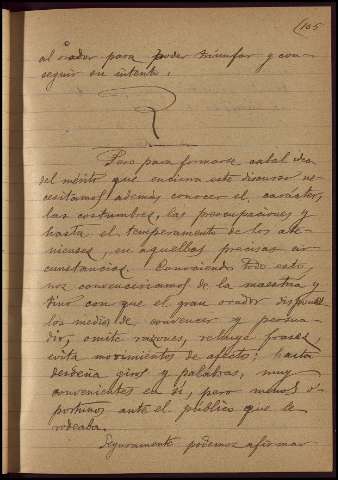 (105
al orador para poder triunfar y con-
seguir su intento.
Pero para formarse cabal idea
del mérito que encierra este discurso ne-
cesitamos además conocer el carácter,
las costumbres, las preocupaciones y
hasta el temperamento de los ate-
nienses, en aquellas precisas cir-
cunstancias. Conociendo todo esto,
nos convenceríamos de la maestría y
tino con que el gran orador dispone
los medios de convencer y persua-
dir, omite razones, rehuye frases,
evita movimientos de afectos; hasta
desdeña giros y palabras, muy
convenientes en sí, pero menos o-
portunos ante el público que le
rodeaba.
Seguramente podemos afirmar